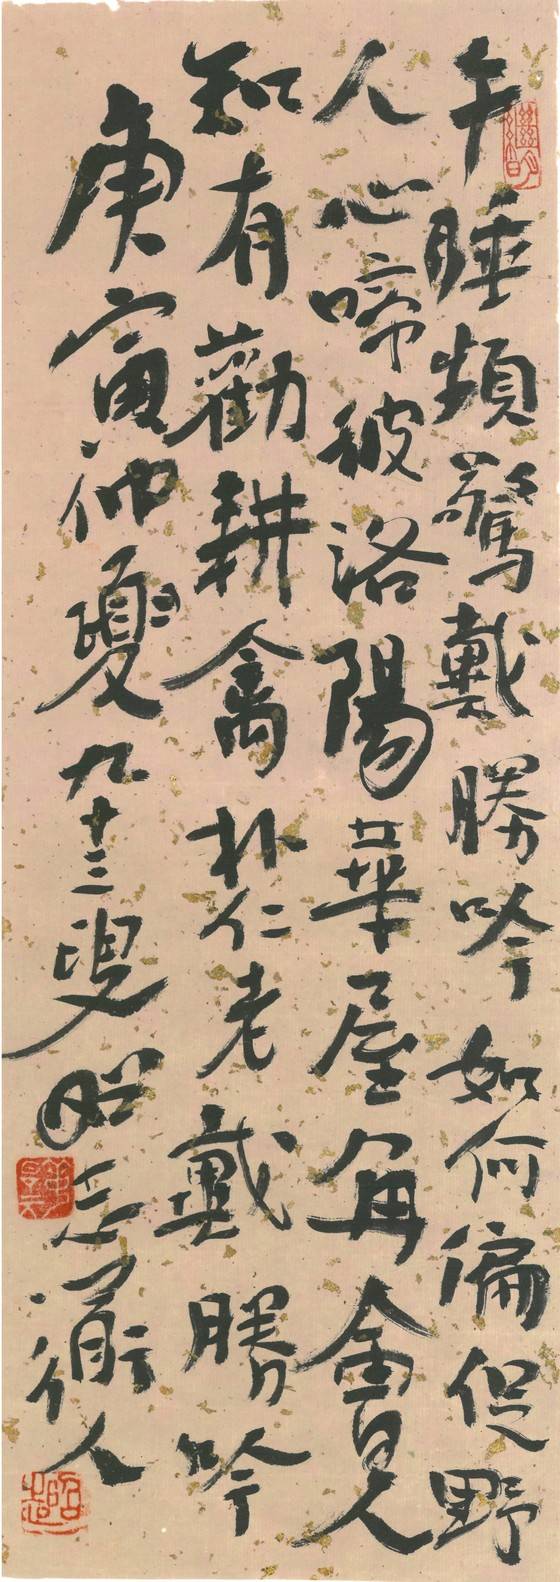 午睡頻驚戴勝吟如何偏促野
人心啼彼洛陽華屋會見
知有勸耕禽朴仁老戴勝吟
庚寅仲夏九十三叟昭人